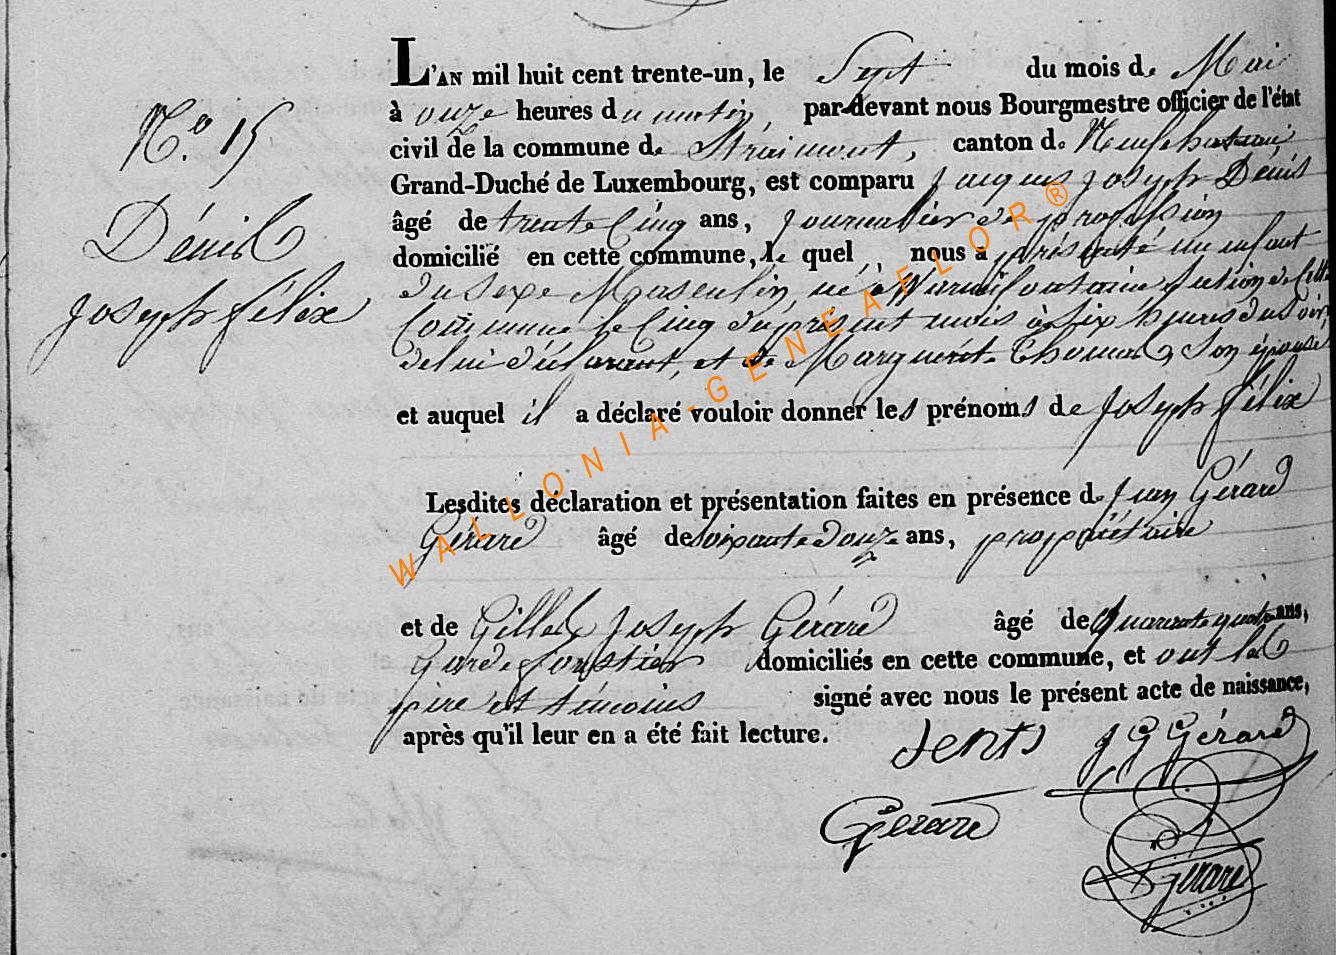 N.º 15
Dénis
Joseph félix
L'AN mil huit cent trente-un, le Sept du mois de Mai
à onze heures du matin, par-devant nous Bourgmestre officier de l'état
civil de la commune de Straimont, canton de Neufchateau
Grand-Duché de Luxembourg, est comparu Jacques Joseph Dénis
âgé de trente Cinq ans, Journallier de profession
domicilié en cette commune, le quel, nous a présenté un enfant
du Sexe Masculin, né à Warmifontaine Section de Cette
Commune le Cinq du présent mois à Six heures du Soir,
de lui déclarant, et de Marguerite Thomas, Son épouse
et auquel il a déclaré vouloir donner les prénoms de Joseph félix
Lesdites déclaration et présentation faites en présence de Jean Gérard
Gérard âgé de soixante douze ans, propriétaire
et de Gilles Joseph Gérard âgé de quarante quatre ans,
Garde forestier domiciliés en cette commune, et ont les
père et témoins signé avec nous le présent acte de naissance,
après qu'il leur en a été fait lecture.
denis J G Gérard
Gerard
Gerard
WALLONIA-GENEAFLOR®